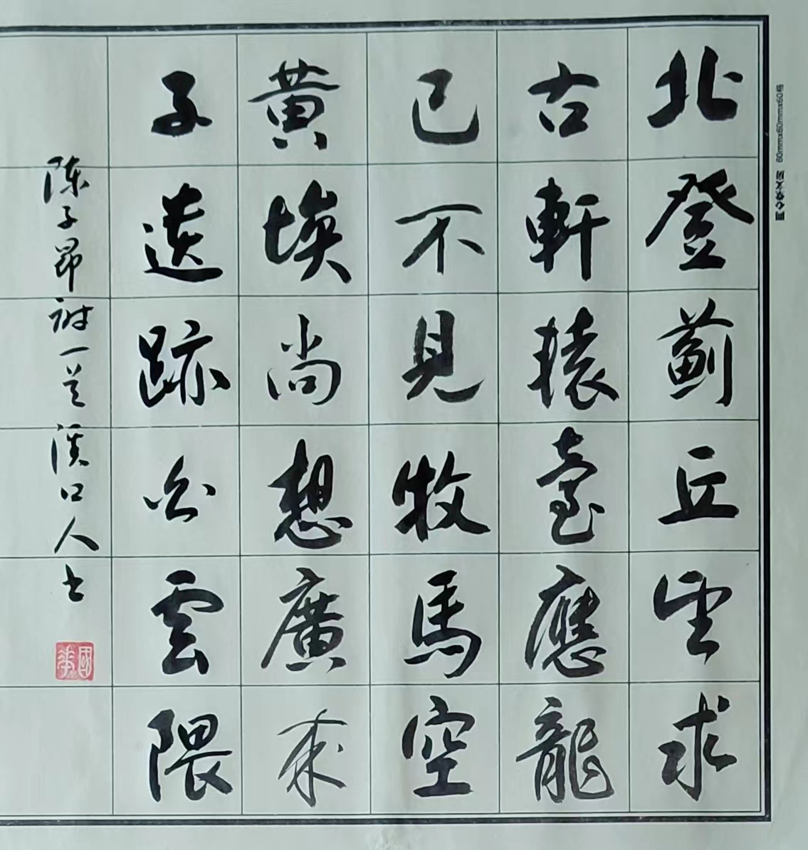 北登薊丘望求
古軒轅臺應龍
已不見牧馬空
黄埃尚想廣成
子遺跡白雲隈
陈子昂詩一首溪口人书
60mmx60mmx60格